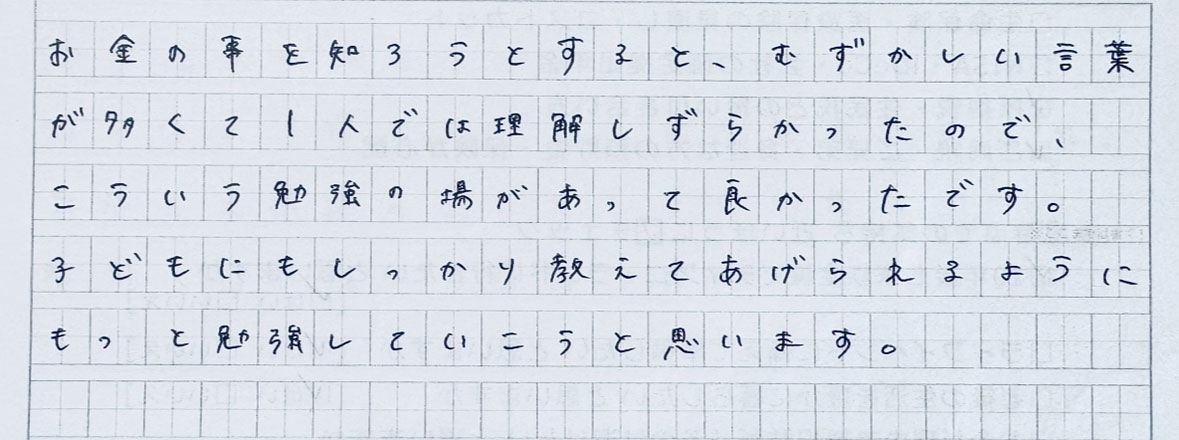 お金の事を知ろうとすると、むずかしい言葉
が多くて1人では理解しずらかったので、
こういう勉強の場があって良かったです。
子どもにもしっかり教えてあげられるように
もっと勉強していこうと思います。